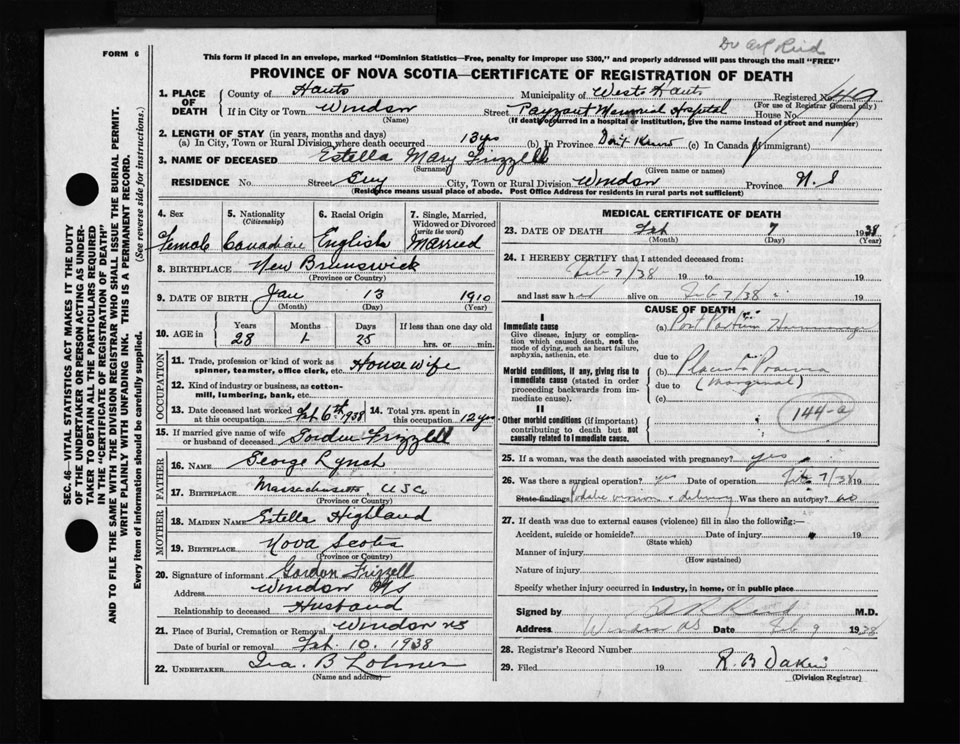 Dr A R Reid
FORM 6
This form if placed in an envelope, marked "Dominion Statistics—Free, penalty for improper use $300," and properly addressed will pass through the mail "FREE"
PROVINCE OF NOVA SCOTIA—CERTIFICATE OF REGISTRATION OF DEATH
SEC. 46—VITAL STATISTICS ACT MAKES IT THE DUTY
OF THE UNDERTAKER OR PERSON ACTING AS UNDER-
TAKER TO OBTAIN ALL THE PARTICULARS REQUIRED
IN THE "CERTIFICATE OF REGISTRATION OF DEATH"
AND TO FILE THE SAME WITH THE DIVISION REGISTRAR WHO SHALL ISSUE THE BURIAL PERMIT.
WRITE PLAINLY WITH UNFADING INK. THIS IS A PERMANENT RECORD.
Every item of information should be carefully supplied. (See reverse side for instructions.)
1. PLACE OF DEATH
County of Hants Municipality of West Hants Registered No. 449
(For use of Registrar General only)
If in City or Town Windsor Street Payzant Memorial Hospital House No.
(Name) (If death occurred in a hospital or institution, give the name instead of street and number)
2. LENGTH OF STAY (in years, months and days)
(a) In City, Town or Rural Division where death occurred 13 yrs (b) In Province Don't Know (c) In Canada (if immigrant)
3. NAME OF DECEASED Estella Mary Frizzell
(Surname) (Given name or names)
RESIDENCE No. Street City, Town or Rural Division Windsor Province N.S
(Residence means usual place of abode. Post Office Address for residents in rural parts not sufficient)
4. Sex Female
5. Nationality (Citizenship) Canadian
6. Racial Origin English
7. Single, Married, Widowed or Divorced (write the word) Married
8. BIRTHPLACE New Brunswick
(Province or Country)
9. DATE OF BIRTH Jan 13 1910
(Month) (Day) (Year)
10. AGE in Years 28 Months 1 Days 25 If less than one day old hrs. or min.
OCCUPATION
11. Trade, profession or kind of work as spinner, teamster, office clerk, etc. Housewife
12. Kind of industry or business, as cotton-mill, lumbering, bank, etc.
13. Date deceased last worked at this occupation Feb 6th 1938
14. Total yrs. spent in this occupation 12 yrs
15. If married give name of wife or husband of deceased Gordon Frizzell
FATHER
16. NAME George Lynch
17. BIRTHPLACE Massachusetts, USA
(Province or Country)
MOTHER
18. MAIDEN NAME Estella Highland
19. BIRTHPLACE Nova Scotia
(Province or Country)
20. Signature of informant Gordon Frizzell
Address Windsor NS
Relationship to deceased Husband
21. Place of Burial, Cremation or Removal Windsor NS
Date of burial or removal Feb. 10. 1938
22. UNDERTAKER Ira. B
(Name and address)
MEDICAL CERTIFICATE OF DEATH
23. DATE OF DEATH Feb 7 1938
(Month) (Day) (Year)
24. I HEREBY CERTIFY that I attended deceased from:
Feb 7/38 19 to 19
and last saw h er alive on Feb 7/38 19
CAUSE OF DEATH
I
Immediate cause
Give disease, injury or complication which caused death, not the mode of dying, such as heart failure, asphyxia, asthenia, etc
(a) Post Partum Hemorrhage
due to
Morbid conditions, if any, giving rise to immediate cause (stated in order proceeding backwards from immediate cause).
(b) Placenta Praevia
due to (Marginal)
(c)
144-a
II
Other morbid conditions (if important) contributing to death but not causally related to immediate cause.
25. If a woman, was the death associated with pregnancy? yes
26. Was there a surgical operation? yes Date of operation Feb 7/38 19
State findings Podalic version & delivery Was there an autopsy? no
27. If death was due to external causes (violence) fill in also the following:
Accident, suicide or homicide? Date of injury 19
(State which)
Manner of injury
(How sustained)
Nature of injury
Specify whether injury occurred in industry, in home, or in public place
Signed by A R Reid M.D.
Address Windsor NS Date Feb 9 1938
28. Registrar's Record Number
29. Filed 19 R. B Dakin
(Division Registrar)